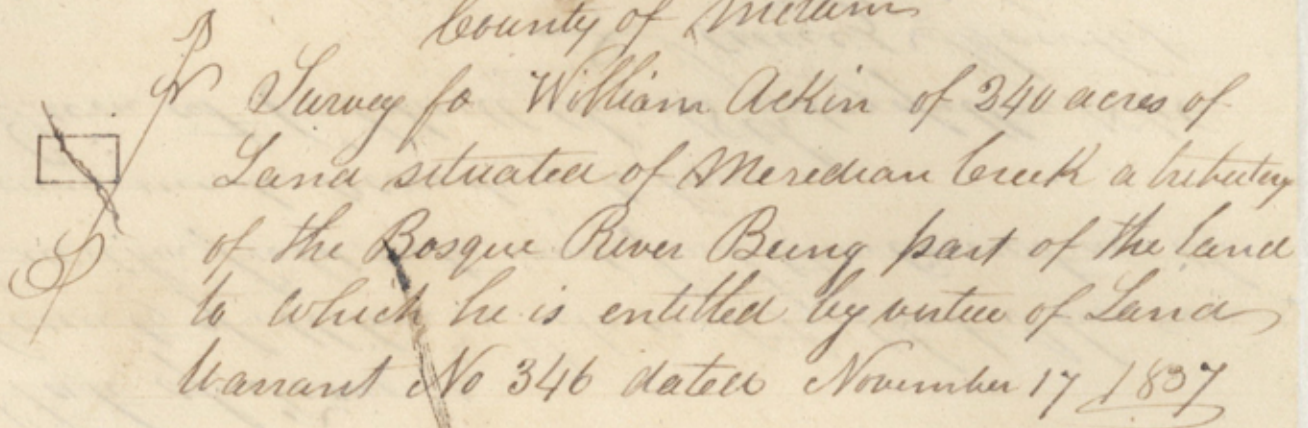 County of Milam
Survey fo William Ackin of 340 acres of
Land situated of Meredian Creek a tributary
of the Bosque River Being part of the land
to which he is entitled by virtue of Land
Warrant No 346 dated November 17 1837